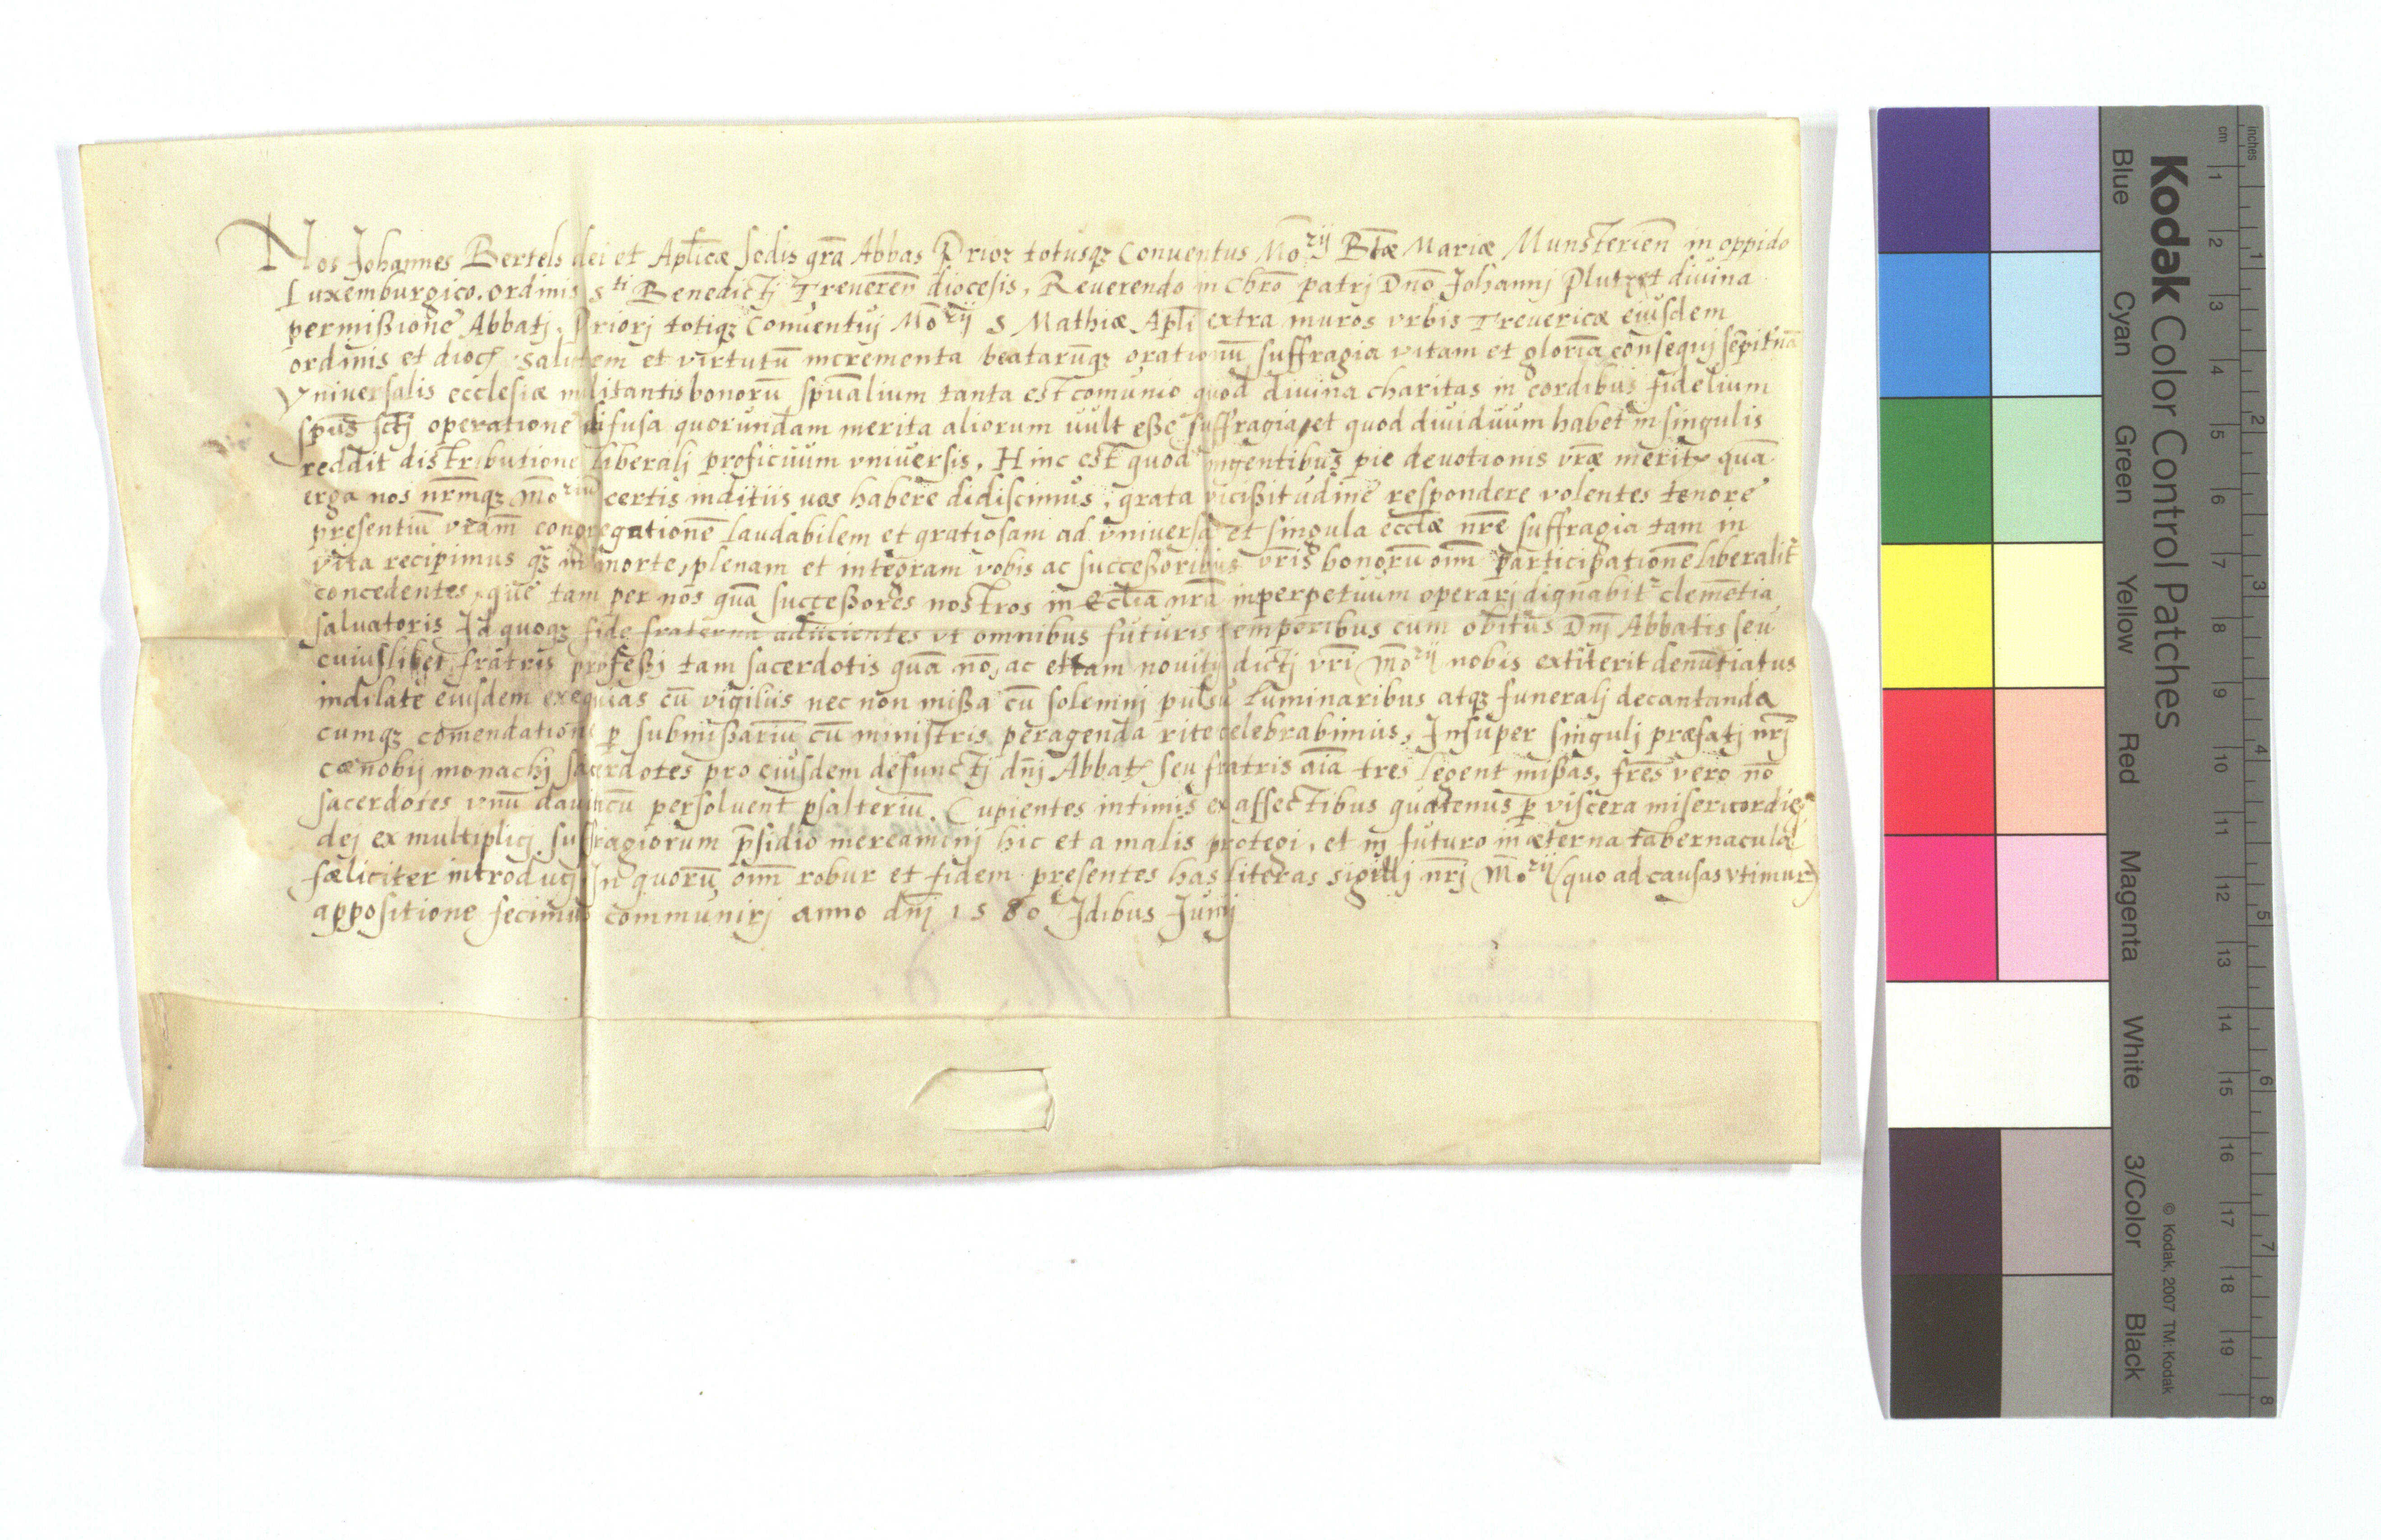 Nos Johannes Bertels dei et Aplicæ sedis gra Abbas Prior totusqz Conventus Mo^rij Btæ Mariæ Munsterien in oppido
Luxemburgico. ordinis s^ti Benedictj Treveren diocesis, Reuerendo in Chro patrj Dno Johannj Plutzet divina
permißione Abbatj, Priorj totiqz Conventuj Mo^rij S Mathiæ Apli extra muros vrbis Trevericæ eiusdem
ordinis et dioc salutem et virtutū incrementa beatarūqz orationū suffragia vitam et gloria consequj sepiterna
Vniversalis ecclesiæ militantis bonorū spualium tanta est comunio quod divina charitas in cordibus fidelium
spus sctj operatione difusa quorundam merita aliorum uult eße suffragia, et quod dividuum habet in singulis
reddit distributione liberalj proficiuum vniuersis, Hinc est quod exigentibus pie deuotionis vræ meritis quā
erga nos nrmqz Mo^rium certis inditiis uos habere didiscimus, grata vicißitudine respondere volentes tenore
presentiū vram congregatione laudabilem et gratiosam ad vniversa et singula ecclæ nre suffragia tam in
vita recipimus qz in morte, plenam et integram vobis ac succeßoribus vris bonorū oim participatione liberalit
concedentes, que tam per nos quā succeßores nostros in Ecclia nra inperpetuum operarj dignabit clemētia
salvatoris Id quoqz fide fraterna adiicientes vt omnibus futuris temporibus cum obitus Dnj Abbatis seu
cuiuslibet fratris profeßj tam sacerdotis quā no, ac etiam novitij dictj vri Mo^rij nobis extiterit denūtiatus
indilate eiusdem exequias cū vigiliis nec non mißa cū solemnj pulsu luminaribus atqz funeralj decantanda
cumqz comendatione p submißariū cū ministris peragenda rite celebrabimus, Insuper singulj præfatj nrj
cænobij monachj sacerdotes pro eiusdem defunctj dnj Abbatis seu fratris aīa tres legent mißas, fres vero no
sacerdotes vnū daviticū persolvent psalteriū. Cupientes intimis ex affectibus quatenus p viscera misericordie
dej ex multiplicj suffragiorum psidio mereaminj hic et a malis protegi, et in futuro in æterna tabernacula
fæliciter introducj In quorū oim robur et fidem presentes has literas sigillj nrj Mo^rij (quo ad causas vtimur)
appositione fecimus communirj anno dnj 1580 Idibus Junij
Kodak Color Control Patches
Blue Cyan Green Yellow Red Magenta White 3/Color Black
© Kodak, 2007 TM: Kodak
cm 1 2 3 4 5 6 7 8 9 10 11 12 13 14 15 16 17 18 19
inches 1 2 3 4 5 6 7 8